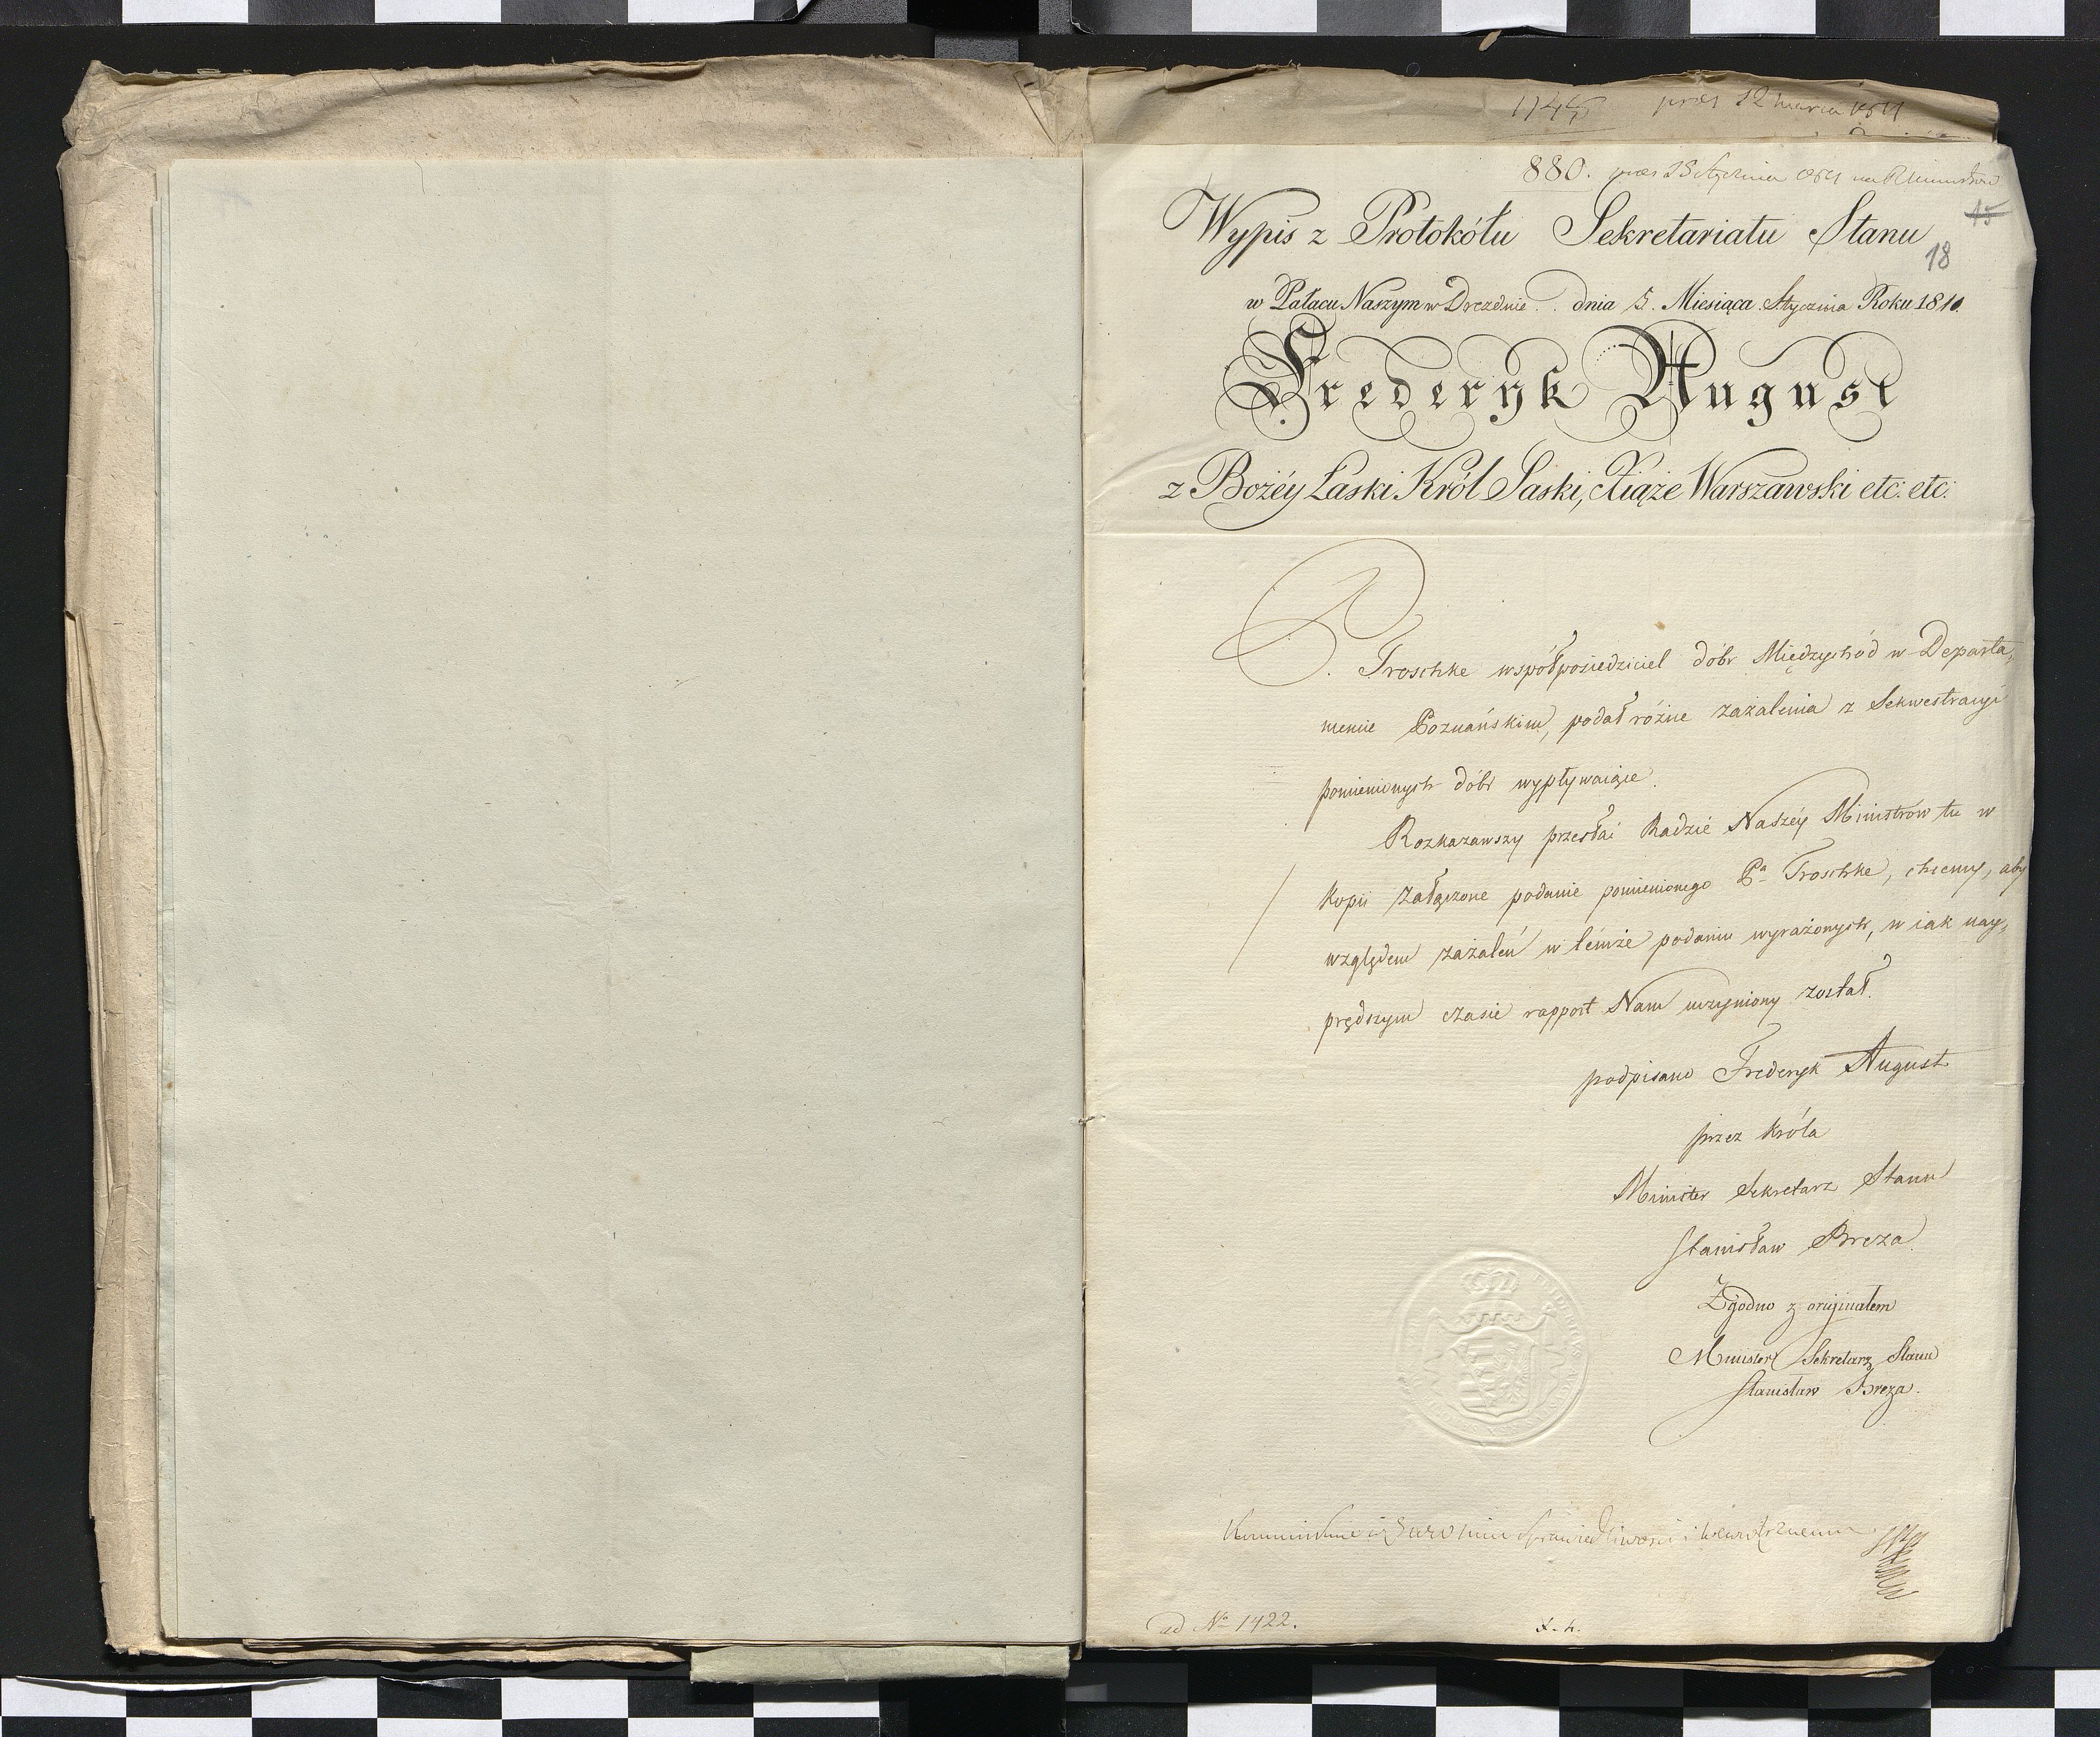 1745 pres 12 marca 1811
880. pres 18 Stycznia 1811 na R Ministrów
15
Wypis z Protokółu Sekretariatu Stanu
18
w Pałacu Naszym w Dreźdnie dnia 5. Miesiąca Stycznia Roku 1811.
Fryderyk August
z Bożéy Łaski Król Saski, Xiąże Warszawski etc. etc.
P. Troschke współposiedziciel dóbr Międzychód w Departa,
mencie Poznańskim, podał różne zażalenia z Sekwestracyi
pomienionych dóbr wypływaiące.
Rozkazawszy przesłać Radzie Naszéy Ministrów tu w
kopii załączone podanie pomienionego Pa Troschke, chcemy, aby
względem zażaleń w témże podaniu wyrażonych, w iak nay,
prędszym czasie rapport Nam uczyniony został.
podpisano Frederyk August
przez Króla
Minister Sekretarz Stanu
Stanisław Breza
Zgodno z originałem
Minister Sekretarz Stanu
Stanisław Breza.
Sprawiedliwości i Wewnętrznemu
ad No 1422.